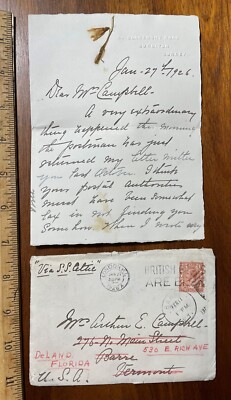 Jan-27th 1926.
Dear Mrs Campbell-
A very extraordinary
thing happened this morning
the postman has just
returned my letter written
you last October. I think
your postal authorities
must have been somewhat
lax in not finding you
Somehow when I wrote
"Via S.S. Celtic"
BRITISH
ARE B
Mrs Arthur E. Campbell-
275-No Main Street
530 E. RICH AVE
DeLAND.
FLORIDA
Barre
Vermont
U.S.A.